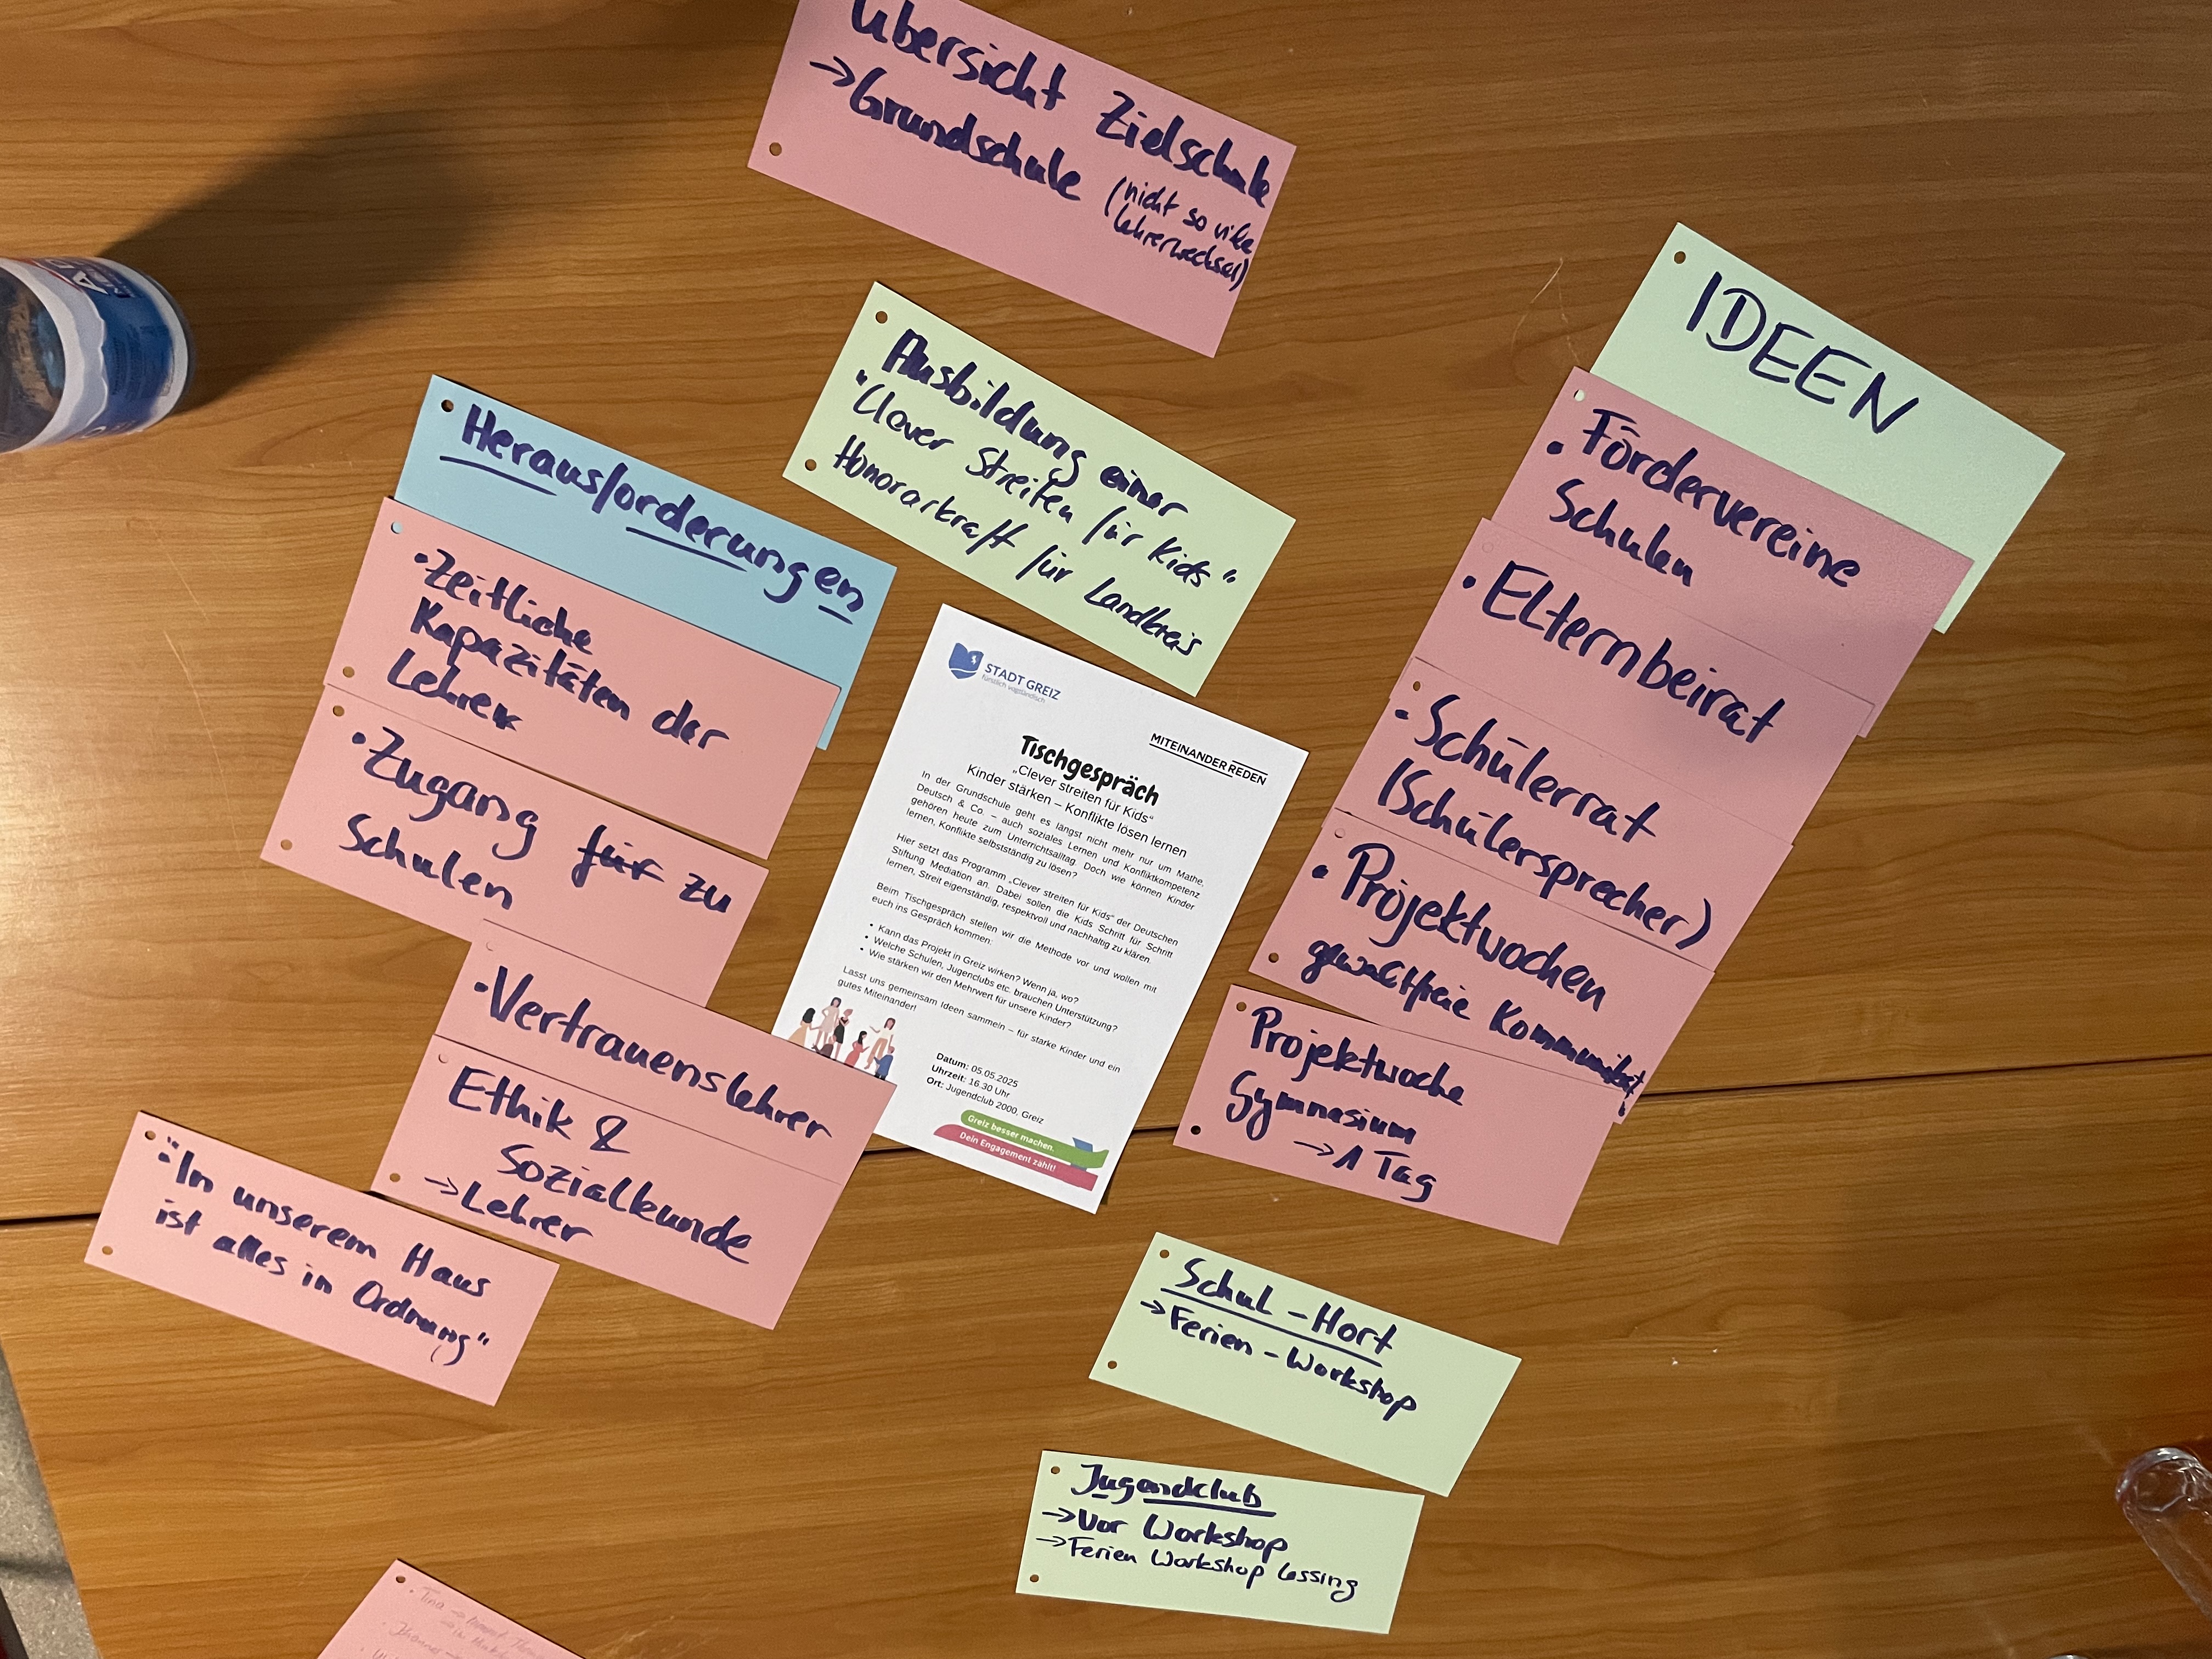 Übersicht Zielschule
→ Grundschule (nicht so viele
Lehrerwechsel)
Ausbildung einer
"Clever Streiten für Kids"
Honorarkraft für Landkreis
Herausforderungen
• Zeitliche
Kapazitäten der
Lehrer
• Zugang für zu
Schulen
• Vertrauenslehrer
Ethik &
Sozialkunde
→ Lehrer
"In unserem Haus
ist alles in Ordnung"
STADT GREIZ
fürstlich vogtländisch
MITEINANDER REDEN
Tischgespräch
„Clever streiten für Kids“
Kinder stärken – Konflikte lösen lernen
In der Grundschule geht es längst nicht mehr nur um Mathe,
Deutsch & Co. – auch soziales Lernen und Konfliktkompetenz
gehören heute zum Unterrichtsalltag. Doch wie können Kinder
lernen, Konflikte selbstständig zu lösen?
Hier setzt das Programm „Clever streiten für Kids“ der Deutschen
Stiftung Mediation an. Dabei sollen die Kids Schritt für Schritt
lernen, Streit eigenständig, respektvoll und nachhaltig zu klären.
Beim Tischgespräch stellen wir die Methode vor und wollen mit
euch ins Gespräch kommen:
• Kann das Projekt in Greiz wirken? Wenn ja, wo?
• Welche Schulen, Jugenclubs etc. brauchen Unterstützung?
• Wie stärken wir den Mehrwert für unsere Kinder?
Lasst uns gemeinsam Ideen sammeln – für starke Kinder und ein
gutes Miteinander!
Datum: 05.05.2025
Uhrzeit: 16.30 Uhr
Ort: Jugendclub 2000, Greiz
Greiz besser machen.
Dein Engagement zählt!
IDEEN
• Fördervereine
Schulen
• Elternbeirat
• Schülerrat
(Schülersprecher)
• Projektwochen
gewaltfreie Kommunikat.
Projektwoche
Gymnasium
→ 1 Tag
Schul-Hort
→ Ferien-Workshop
Jugendclub
→ Vor Workshop
→ Ferien Workshop Lessing
• Tina →